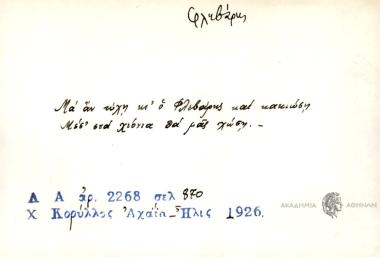 Φλεβάρης
Μά ἄν τύχη κι' ὁ Φλεβάρης καί κακιώση
Μέσ' στά χιόνια θά μᾶς χώση.-
Λ Α ἀρ. 2268 σελ 870
Χ Κορύλλος Ἀχαΐα-Ἦλις 1926.
ΑΚΑΔΗΜΙΑ ΑΘΗΝΩΝ